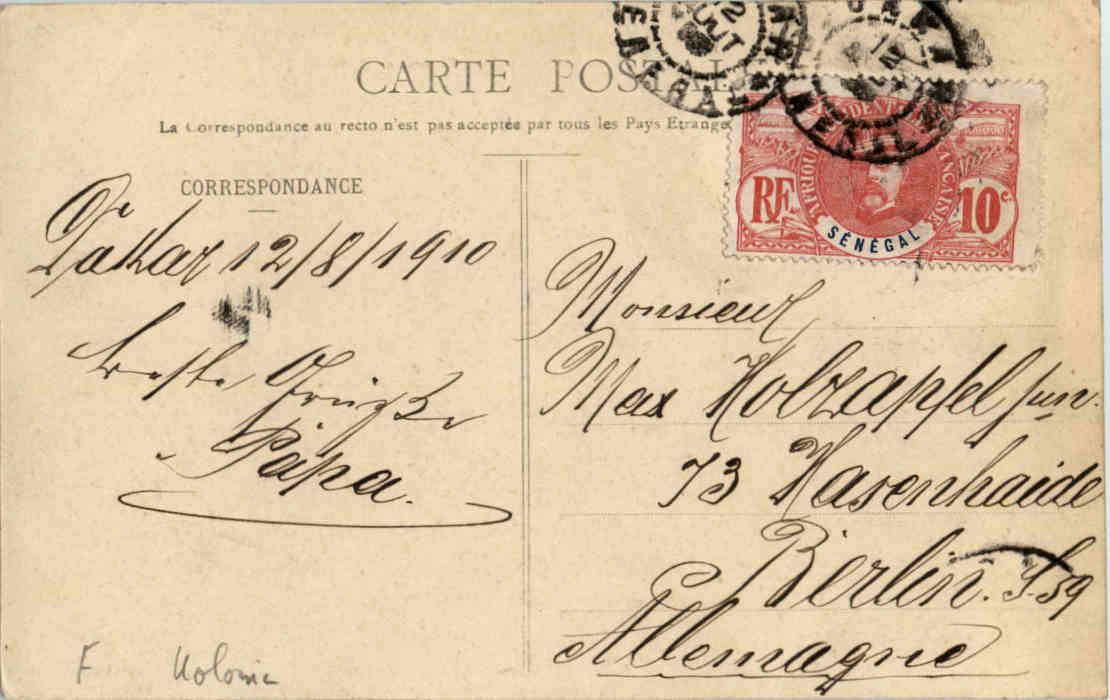 CARTE POSTALE
La Correspondance au recto n'est pas acceptée par tous les Pays Etrange
CORRESPONDANCE
RF
AFRIQUE
OCCIDENTALE
FRANÇAISE
SÉNÉGAL
10 c
Dakar 12/8/1910
beste Grüße
Papa.
Monsieur
Max Holzapfel jun.
73 Hasenhaide
Berlin. S. 59
Allemagne
F Kolonie